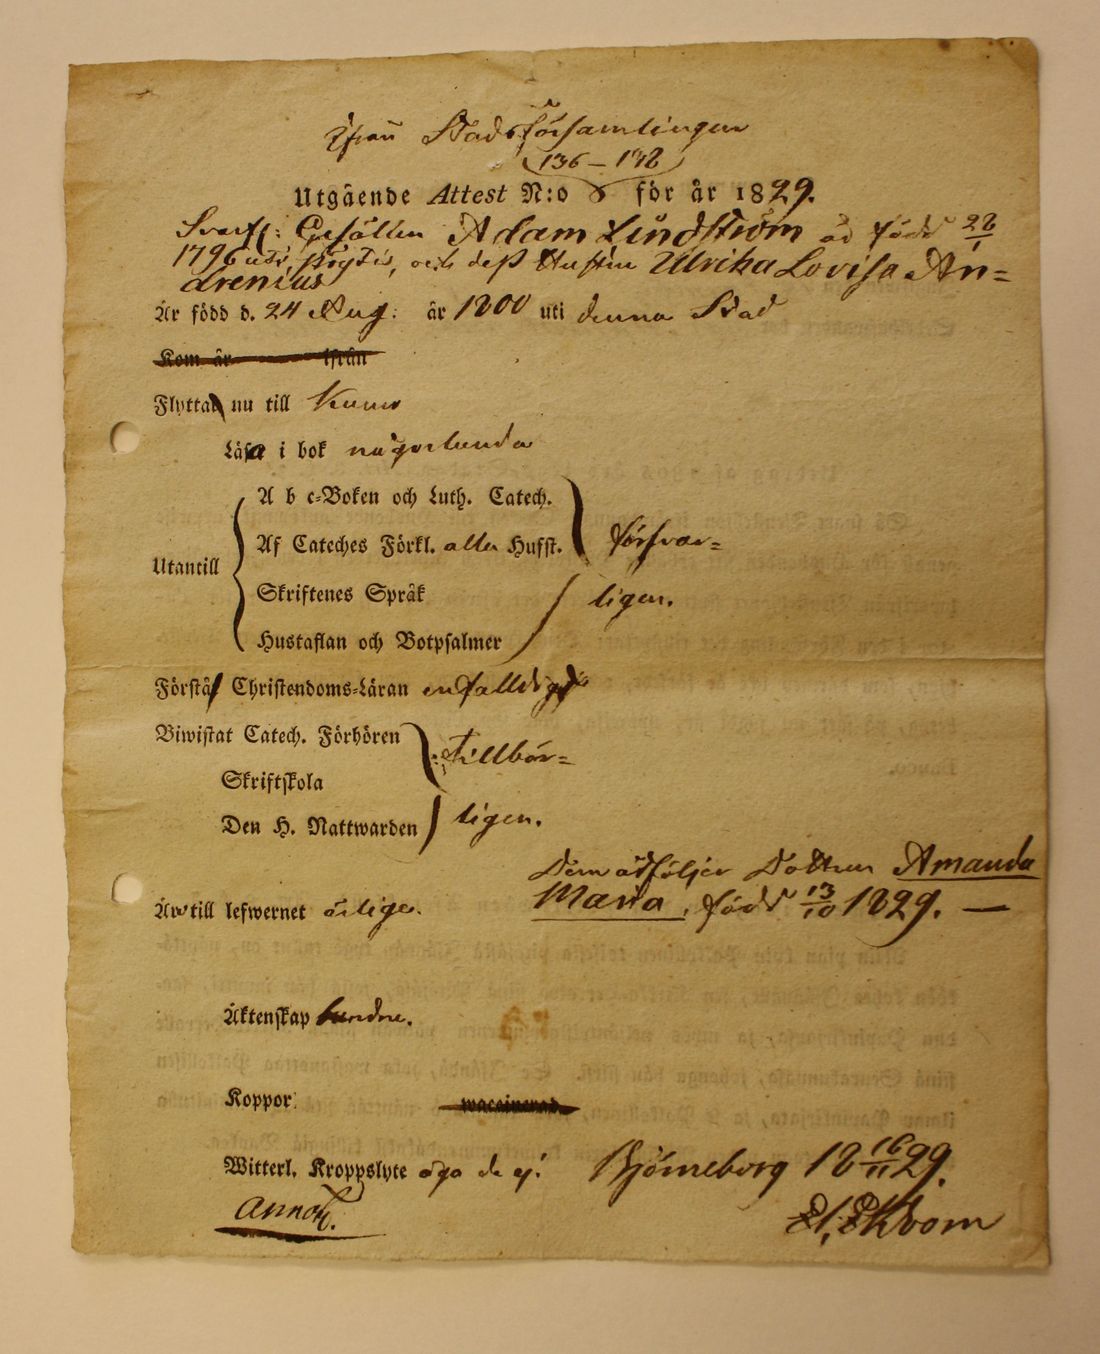 Ifrån Stadsförsamlingen
136–138
Utgående Attest N:o för år 1829.
Gesällen Adam Lindström är född 28/1
1796 uti, och dess Hustru Ulrika Lovisa An=
drenius
Är född d. 24 Aug: år 1800 uti denna Stad
Kom år ifrån
Flytta nu till Kumo
Läsa i bok någorlunda
A b c-Boken och Luth. Catech.
Af Cateches Förkl. alla Hufst. försvar=
Utantill
Skriftenes Språk ligen.
Hustaflan och Botpsalmer
Förstå Christendoms-Läran enfalldigt
Biwistat Catech. Förhören Tillbör=
Skriftskola
Den H. Nattwarden ligen.
Dem åtföljer Dottren Amanda
Maria, född 13/10 1829. —
Äro till lefwernet ärlige.
Äktenskap bundne.
Koppor waccinerad
Witterl. Kroppslyte äga de ej. Björneborg 18 16/11 29.
Annot. Ekbom